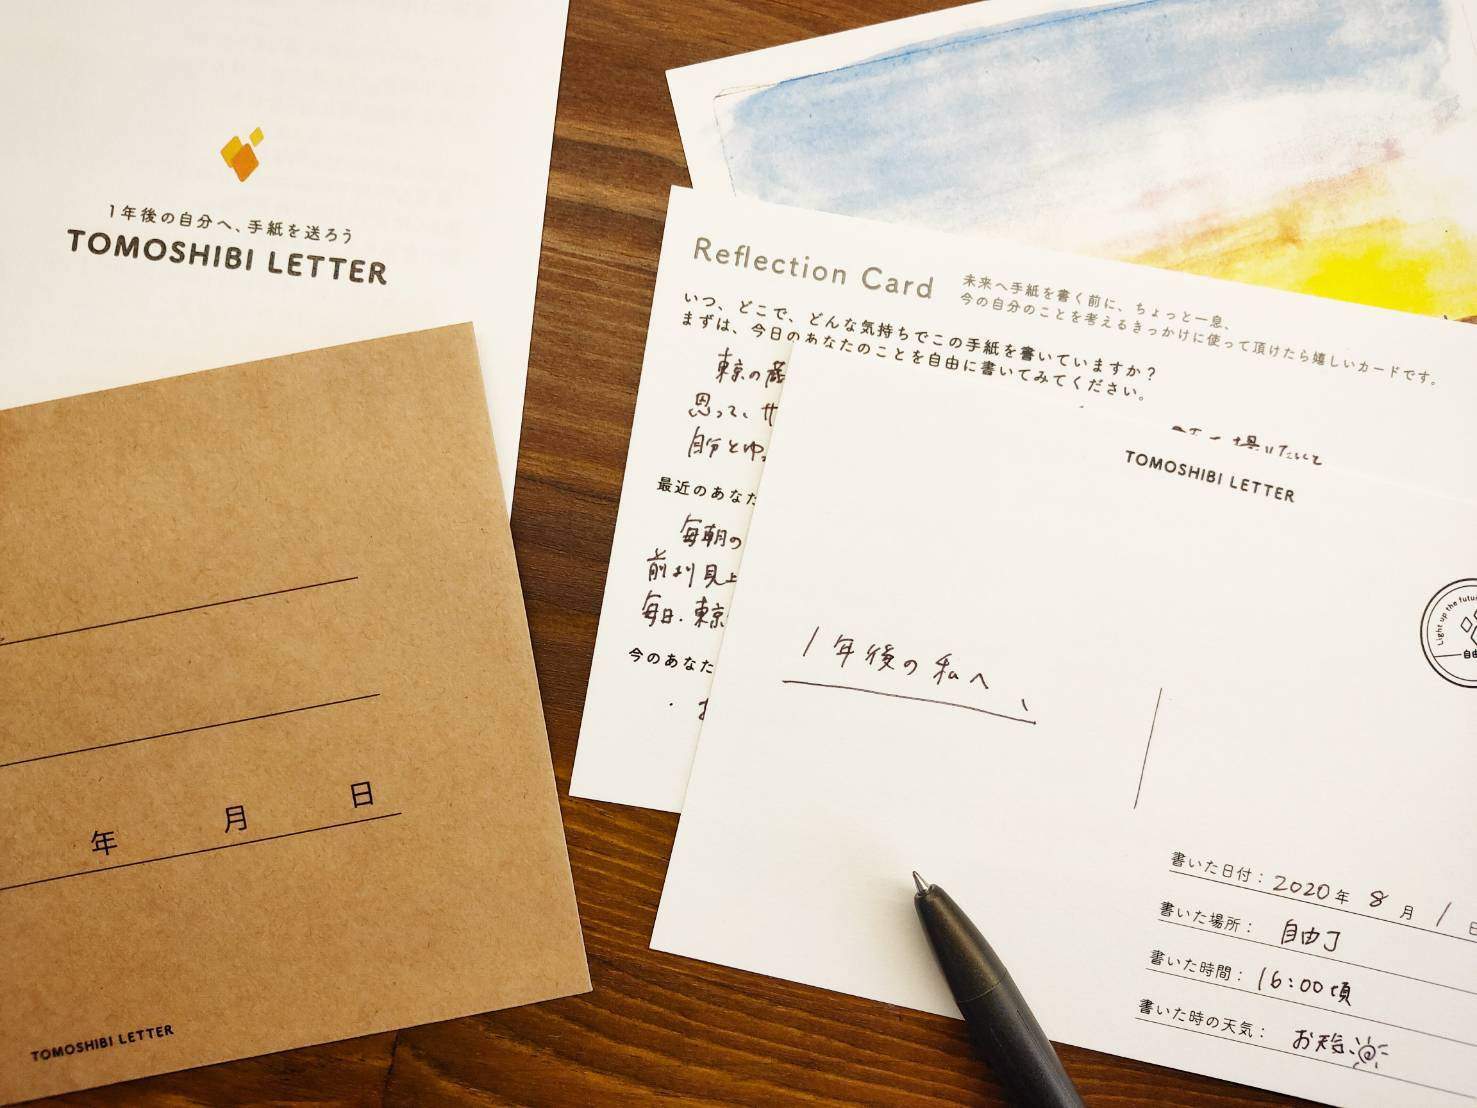 1年後の自分へ、手紙を送ろう
TOMOSHIBI LETTER
年 月 日
TOMOSHIBI LETTER
Reflection Card
未来へ手紙を書く前に、ちょっと一息、
今の自分のことを考えるきっかけに使って頂けたら嬉しいカードです。
いつ、どこで、どんな気持ちでこの手紙を書いていますか?
まずは、今日のあなたのことを自由に書いてみてください。
東京の蔵
思って、
自分とゆ
最近のあなた
毎朝の
前より見上
毎日、東京
今のあなた
TOMOSHIBI LETTER
Light up the futu
自由
1年後の私へ、
書いた日付:2020年 8月 1日
書いた場所: 自由丁
書いた時間:16:00頃
書いた時の天気: お天気